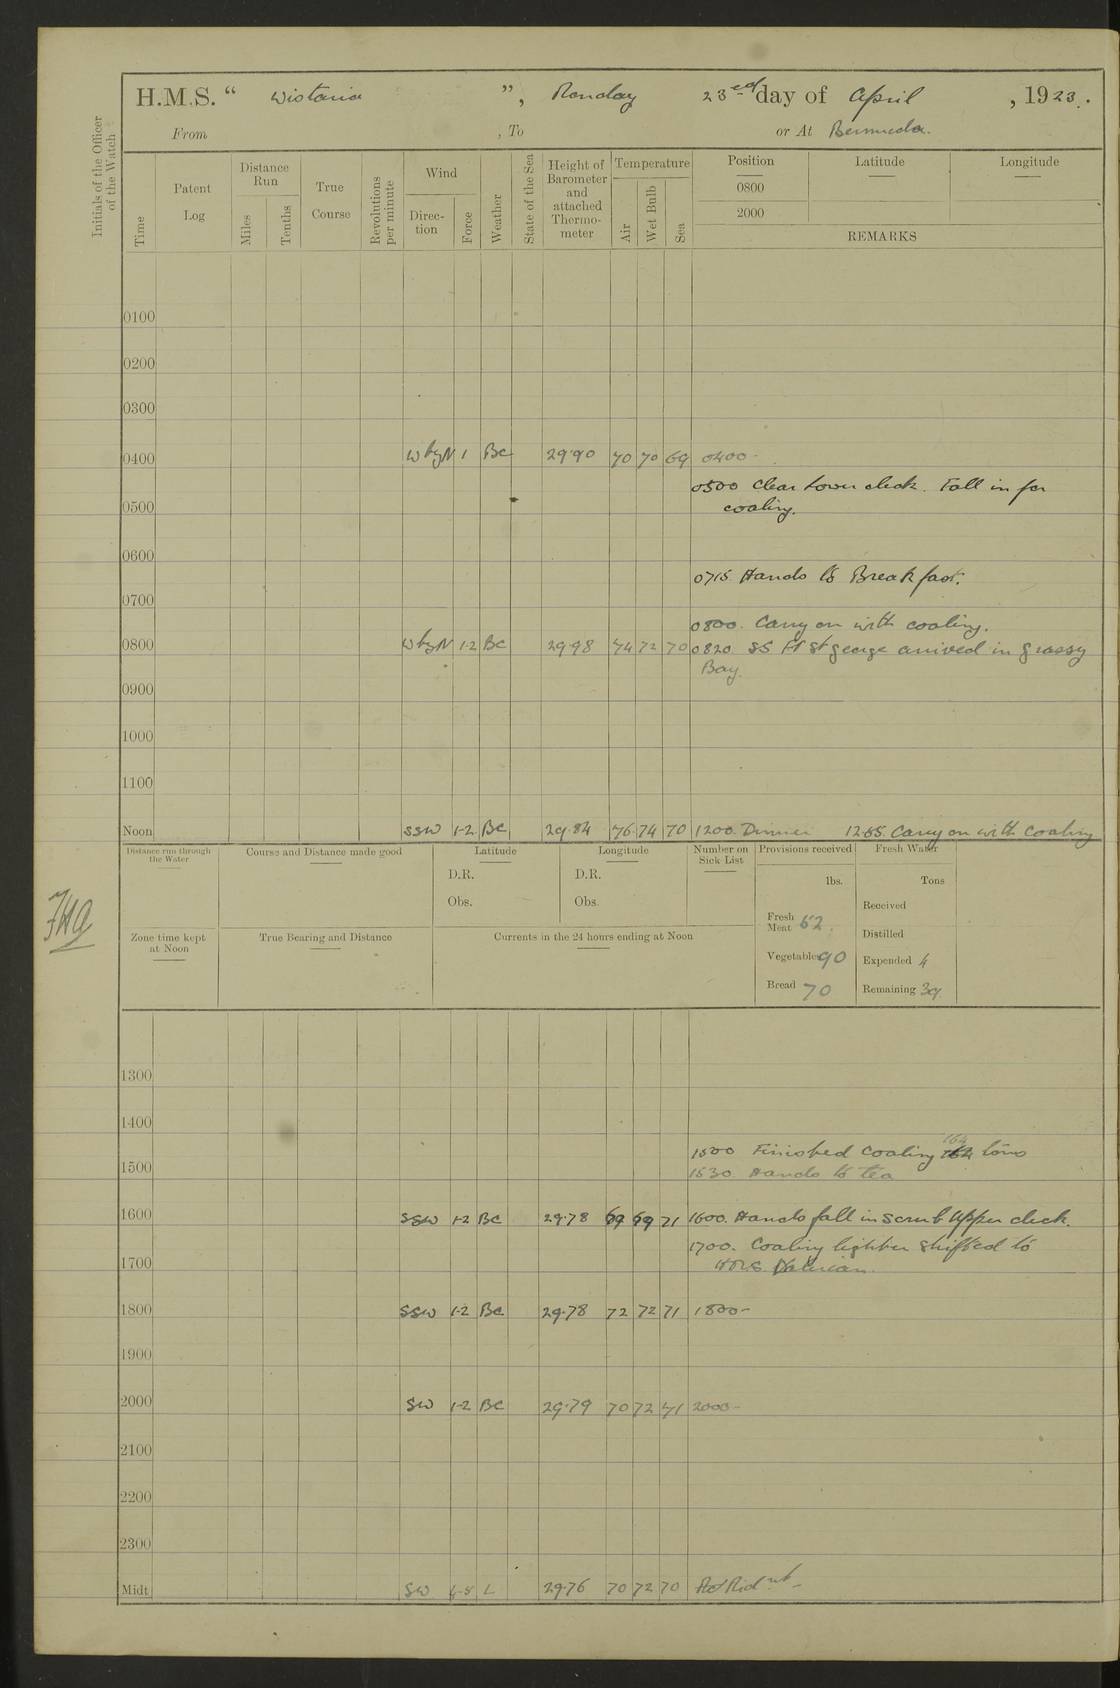 H.M.S. “ Wistaria ”, Monday 23rd day of April , 1923.
From , To or At Bermuda.
Initials of the Officer of the Watch
Time
Patent Log
Distance Run
Miles
Tenths
True Course
Revolutions per minute
Wind
Direction
Force
Weather
State of the Sea
Height of Barometer and attached Thermometer
Temperature
Air
Wet Bulb
Sea
Position Latitude Longitude
0800
2000
REMARKS
0100
0200
0300
0400 W by N 1 BC 29.90 70 70 69 0400-
0500 Clear lower deck. Fall in for
0500 coaling.
0600
0715 Hands to Breakfast.
0700
0800. Carry on with coaling.
0800 W by N 1-2 BC 29.98 74 72 70 0820 SS Ft St George arrived in Grassy
Bay.
0900
1000
1100
Noon SSW 1-2 BC 29.84 76 74 70 1200. Dinner 1255. Carry on with coaling
Distance run through the Water
Course and Distance made good
Latitude
D.R.
Obs.
Longitude
D.R.
Obs.
Number on Sick List
Provisions received
lbs.
Fresh Meat 52
Vegetables 90
Bread 70
Fresh Water
Tons
Received
Distilled
Expended 4
Remaining 39
Zone time kept at Noon
True Bearing and Distance
Currents in the 24 hours ending at Noon
1300
1400
1500 Finished coaling 164 tons
1500 1530. Hands to tea
1600 SSW 1-2 BC 29.78 69 69 71 1600. Hands fall in scrub Upper deck.
1700. Coaling lighter shifted to
1700 HMS Valerian.
1800 SSW 1-2 BC 29.78 72 72 71 1800-
1900
2000 SW 1-2 BC 29.79 70 72 71 2000-
2100
2200
2300
Midt SW 29.76 70 72 70